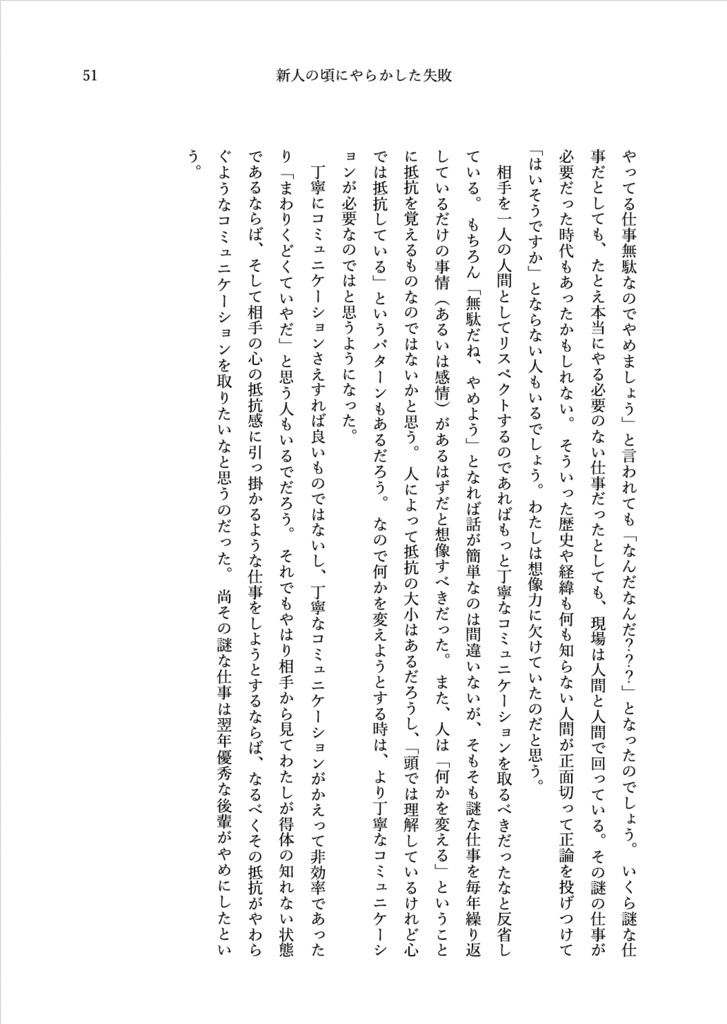 51
新人の頃にやらかした失敗
やってる仕事無駄なのでやめましょう」と言われても「なんだなんだ？？？」となったのでしょう。いくら謎な仕
事だとしても、たとえ本当にやる必要のない仕事だったとしても、現場は人間と人間で回っている。その謎の仕事が
必要だった時代もあったかもしれない。そういった歴史や経緯も何も知らない人間が正面切って正論を投げつけて
「はいそうですか」とならない人もいるでしょう。わたしは想像力に欠けていたのだと思う。
相手を一人の人間としてリスペクトするのであればもっと丁寧なコミュニケーションを取るべきだったなと反省し
ている。もちろん「無駄だね、やめよう」となれば話が簡単なのは間違いないが、そもそも謎な仕事を毎年繰り返
しているだけの事情（あるいは感情）があるはずだと想像すべきだった。また、人は「何かを変える」ということ
に抵抗を覚えるものなのではないかと思う。人によって抵抗の大小はあるだろうし、「頭では理解しているけれど心
では抵抗している」というパターンもあるだろう。なので何かを変えようとする時は、より丁寧なコミュニケーシ
ョンが必要なのではと思うようになった。
丁寧にコミュニケーションさえすれば良いものではないし、丁寧なコミュニケーションがかえって非効率であった
り「まわりくどくていやだ」と思う人もいるでだろう。それでもやはり相手から見てわたしが得体の知れない状態
であるならば、そして相手の心の抵抗感に引っ掛かるような仕事をしようとするならば、なるべくその抵抗がやわら
ぐようなコミュニケーションを取りたいなと思うのだった。尚その謎な仕事は翌年優秀な後輩がやめにしたとい
う。